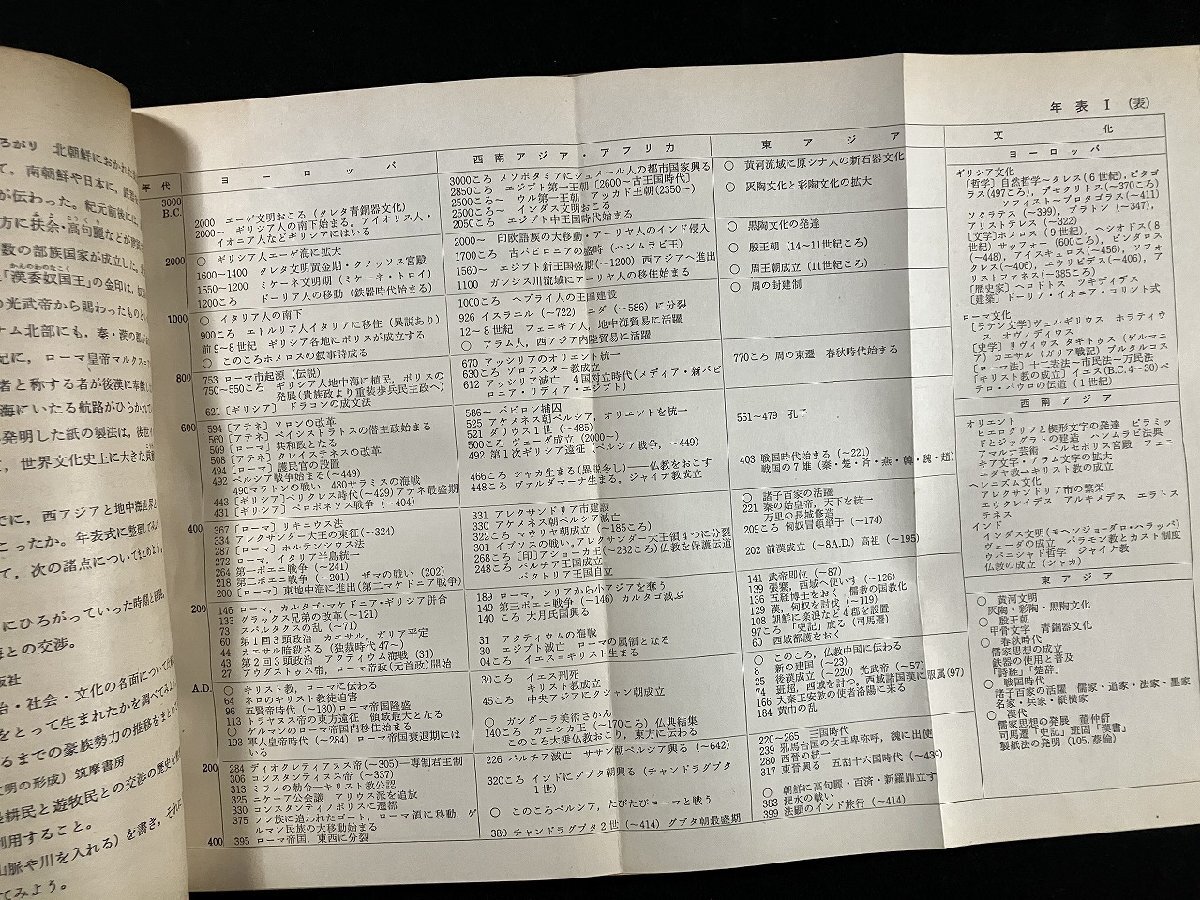 ろがり 北朝鮮におかれた
て，南朝鮮や日本に，鉄器
が伝わった。紀元前後に
方に扶余・高句麗などが
数の部族国家が成立した。
「漢委奴国王」の金印は，
の光武帝から賜わったもの
ナム北部にも，秦・漢の
紀に，ローマ皇帝マルクス
者と称する者が後漢に
海にいたる航路がひらかれて
発明した紙の製法は，後世
，世界文化史上に大きた
でに，西アジアと地中海世界と
こったか。年表式に整理してみ
て，次の諸点についてたしかめ
にひろがっていった時期と
海との交渉。
版社
治・社会・文化の各面について
をとって生まれたかを調べてみよ
るまでの豪族勢力の推移をまとめ
明の形成）筑摩書房
農耕民と遊牧民との交渉の歴史を
利用すること。
山脈や川を入れる）を書き，それに
てみよう。
年表 I （表）
年代
ヨーロッパ
西南アジア・アフリカ
東アジア
文化
ヨーロッパ
3000
B.C.
2000 エーゲ文明おこる（クレタ青銅器文化）
2000― ギリシア人の南下始まる。アイオリス人・
イオニア人などギリシアにはいる
2000
○ ギリシア人エーゲ海に拡大
1600〜1400 クレタ文明黄金期・クノッソス宮殿
1550〜1200 ミケーネ文明期（ミケーネ・トロイ）
1200ころ ドーリア人の移動（鉄器時代始まる）
1000
○ イタリア人の南下
900ころ エトルリア人イタリアに移住（異説あり）
前9〜8世紀 ギリシア各地にポリスが成立する
○ このころホメロスの叙事詩成る
800
753 ローマ市起源（伝説）
750〜550ころ ギリシア人地中海に植民，ポリスの
発展（貴族政より重装歩兵民主政へ）
621 [ギリシア] ドラコンの成文法
600
594 [アテネ] ソロンの改革
560 [アテネ] ペイシストラトスの僭主政始まる
509 [ローマ] 共和政となる
508 [アテネ] クレイステネスの改革
494 [ローマ] 護民官の設置
492 ペルシア戦争始まる（〜449）
490マラトンの戦い 480サラミスの海戦
443 [ギリシア] ペリクレス時代（〜429）アテネ最盛期
431 [ギリシア] ペロポネソス戦争（〜404）
400
367 [ローマ] リキニウス法
334 アレクサンドル大王の東征（〜324）
287 [ローマ] ホルテンシウス法
272 ローマ，イタリア半島統一
264 第一ポエニ戦争（〜241）
218 第二ポエニ戦争（〜201） ザマの戦い（202）
200 [ローマ] 東地中海に進出（第二マケドニア戦争）
200
146 ローマ，カルタゴ・マケドニア・ギリシア併合
133 グラックス兄弟の改革（〜121）
73 スパルタクスの乱（〜71）
60 第1回3頭政治 カエサル，ガリア平定
44 カエサル暗殺さる（独裁時代47〜）
43 第2回3頭政治 アクティウム海戦（31）
27 アウグストゥス帝，ローマ帝政（元首政）開始
A.D.
○ キリスト教，ローマに伝わる
64 ネロのキリスト教徒迫害
96 五賢帝時代（〜180）ローマ帝国隆盛
113 トラヤヌス帝の東方遠征 領域最大となる
○ ゲルマンのローマ帝国内移住始まる
193 軍人皇帝時代（〜284） ローマ帝国衰退期には
いる
200
284 ディオクレティアヌス帝（〜305）―専制君主制
306 コンスタンティヌス帝（〜337）
313 ミラノの勅令―キリスト教公認
325 ニケーア公会議 アリウス派を追放
330 コンスタンティノポリスに遷都
375 フン族に追われたゴート，ローマ領に移動 ゲ
ルマン民族の大移動始まる
400
395 ローマ帝国，東西に分裂
3000ころ メソポタミアにシュメール人の都市国家興る
2850ころ エジプト第一王朝 [2600〜古王国時代]
2500ころ〜 ウル第一王朝 アッカド王朝（2350〜）
2500ころ〜 インダス文明おこる
2050ころ エジプト中王国時代始まる
2000〜 印欧語族の大移動・アーリヤ人のインド侵入
1700ころ 古バビロニアの盛時（ハンムラビ王）
1560〜 エジプト新王国盛期（〜1200）西アジアへ進出
1100 ガンジス川流域にアーリヤ人の移住始まる
1000ころ ヘブライ人の王国建設
926 イスラエル（〜722） ユダ（〜586）に分裂
12〜8世紀 フェニキア人，地中海貿易に活躍
○ アラム人，西アジア内陸貿易に活躍
670 アッシリアのオリエント統一
630ころ ゾロアスター教成立
612 アッシリア滅亡 4国対立時代（メディア・新バビ
ロニア・リディア・エジプト）
586〜 バビロン捕囚
525 アケメネス朝ペルシア，オリエントを統一
521 ダリウス1世（〜485）
500ころ ヴェーダ成立（2000〜）
492 第1次ギリシア遠征 ペルシア戦争（〜449）
466ころ シャカ生まる（異説多し）――仏教をおこす
448ころ ヴァルダマーナ生まる。ジャイナ教成立
331 アレクサンドリア市建設
330 アケメネス朝ペルシア滅亡
322ころ マウリヤ朝成立（〜185ころ）
301 イプソスの戦い，アレクサンダー大王領4つに分裂
268ころ [印]アショーカ王（〜232ころ）仏教を保護伝道
248ころ パルチア王国成立
バクトリア王国自立
189 ローマ，シリアから小アジアを奪う
149 第三ポエニ戦争（〜146）カルタゴ滅ぶ
140 ころ 大月氏国興る
31 アクティウムの海戦
30 エジプト滅亡 ローマの属領となる
04ころ イエス=キリスト生まる
30ころ イエス刑死
キリスト教成立
45ころ 中央アジアにクシャン朝成立
○ ガンダーラ美術さかん
140ころ カニシカ王（〜170ころ）仏典結集
このころ大乗仏教おこり，東方に伝わる
226 パルチア滅亡 ササン朝ペルシア興る（〜642）
320ころ インドにグプタ朝興る（チャンドラグプタ
1世）
○ このころペルシア，たびたびローマと戦う
380 チャンドラグプタ2世（〜414）グプタ朝最盛期
○ 黄河流域に原シナ人の新石器文化
○ 灰陶文化と彩陶文化の拡大
○ 黒陶文化の発達
○ 殷王朝（14〜11世紀ころ）
○ 周王朝成立（11世紀ころ）
○ 周の封建制
770ころ 周の東遷 春秋時代始まる
551〜479 孔子
403 戦国時代始まる（〜221）
戦国の7雄（秦・楚・斉・燕・韓・魏・趙）
○ 諸子百家の活躍
221 秦の始皇帝，天下を統一
万里の長城修造
209ころ 匈奴冒頓単于（〜174）
202 前漢成立（〜8A.D.）高祖（〜195）
141 武帝即位（〜87）
139 張騫，西域へ使いす（〜126）
136 五経博士をおく 儒教の国教化
129 漢，匈奴を討伐（〜119）
108 朝鮮に楽浪など4郡を設置
97ころ 『史記』成る（司馬遷）
60 西域都護をおく
○ このころ，仏教中国に伝わる
8 新の建国（〜23）
25 後漢成立（〜220）光武帝（〜57）
74 班超，西域を討つ。西域諸国漢に服属（97）
166 大秦王安敦の使者洛陽に来る
184 黄巾の乱
220〜265 三国時代
239 邪馬台国の女王卑弥呼，魏に出使
280 西晋の統一
317 東晋興る 五胡十六国時代（〜439）
○ 朝鮮に高句麗・百済・新羅鼎立す
383 淝水の戦い
399 法顕のインド旅行（〜414）
ギリシア文化
[哲学] 自然哲学〜タレス（6世紀），ピタゴ
ラス（497ころ），デモクリトス（〜370ころ）
ソフィスト〜プロタゴラス（〜411）
ソクラテス（〜399），プラトン（〜347），
アリストテレス（〜322）
[文学] ホメロス（9世紀），ヘシオドス（8
世紀）サッフォー（600ころ），ピンダロス
（〜448），アイスキュロス（〜456），ソフォ
クレス（〜406），エウリピデス（〜406），ア
リストファネス（〜385ころ）
[歴史家] ヘロドトス ツキディデス
[建築] ドーリア・イオニア・コリント式
ローマ文化
[ラテン文学] ヴェルギリウス ホラティウ
ス オヴィディウス
[史学] リヴィウス タキトゥス（ゲルマニ
ア）カエサル（ガリア戦記）プルタルコス
[ローマ法] 十二表法〜市民法〜万民法
「キリスト教の成立」イエス（B.C.4〜30）ペ
テロ・パウロの伝道（1世紀）
西南アジア
オリエント
ヒエログリフと楔形文字の発達 ピラミッ
ドとジッグラトの建造 ハンムラビ法典
アマルナ芸術 ペルセポリス宮殿 アー
キア文字・アラム文字の拡大
ユダヤ教―キリスト教の成立
ヘレニズム文化
アレクサンドリア市の繁栄
エウクレイデス アルキメデス エラトス
テネス
インド
インダス文明（モヘンジョ=ダロ・ハラッパ）
ヴェーダの成立 バラモン教とカスト制度
ウパニシャド哲学 ジャイナ教
仏教の成立（シャカ）
東アジア
○ 黄河文明
灰陶・彩陶・黒陶文化
○ 殷王朝
甲骨文字 青銅器文化
○ 春秋時代
儒家思想の成立
鉄器の使用と普及
『詩経』『楚辞』
○ 戦国時代
諸子百家の活躍 儒家・道家・法家・墨家
名家・兵家・縦横家
○ 漢代
儒家思想の発展 董仲舒
司馬遷『史記』班固『漢書』
製紙法の発明（105，蔡倫）